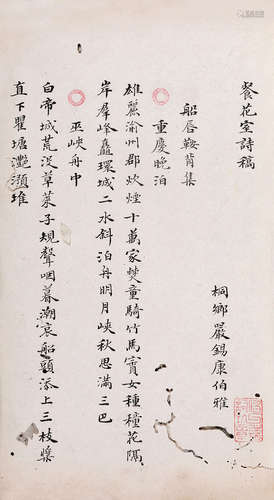 餐花室詩稿
桐鄉嚴錫康伯雅
船唇鞍背集
重慶晚泊
雄麗渝州郡炊煙十萬家僰童騎竹馬賨女種橦花隔
岸羣峰矗環城二水斜泊舟明月峽秋思滿三巴
巫峽舟中
白帝城荒沒草萊子規聲咽暮潮哀船頭添上三枝槳
直下瞿塘灩澦堆